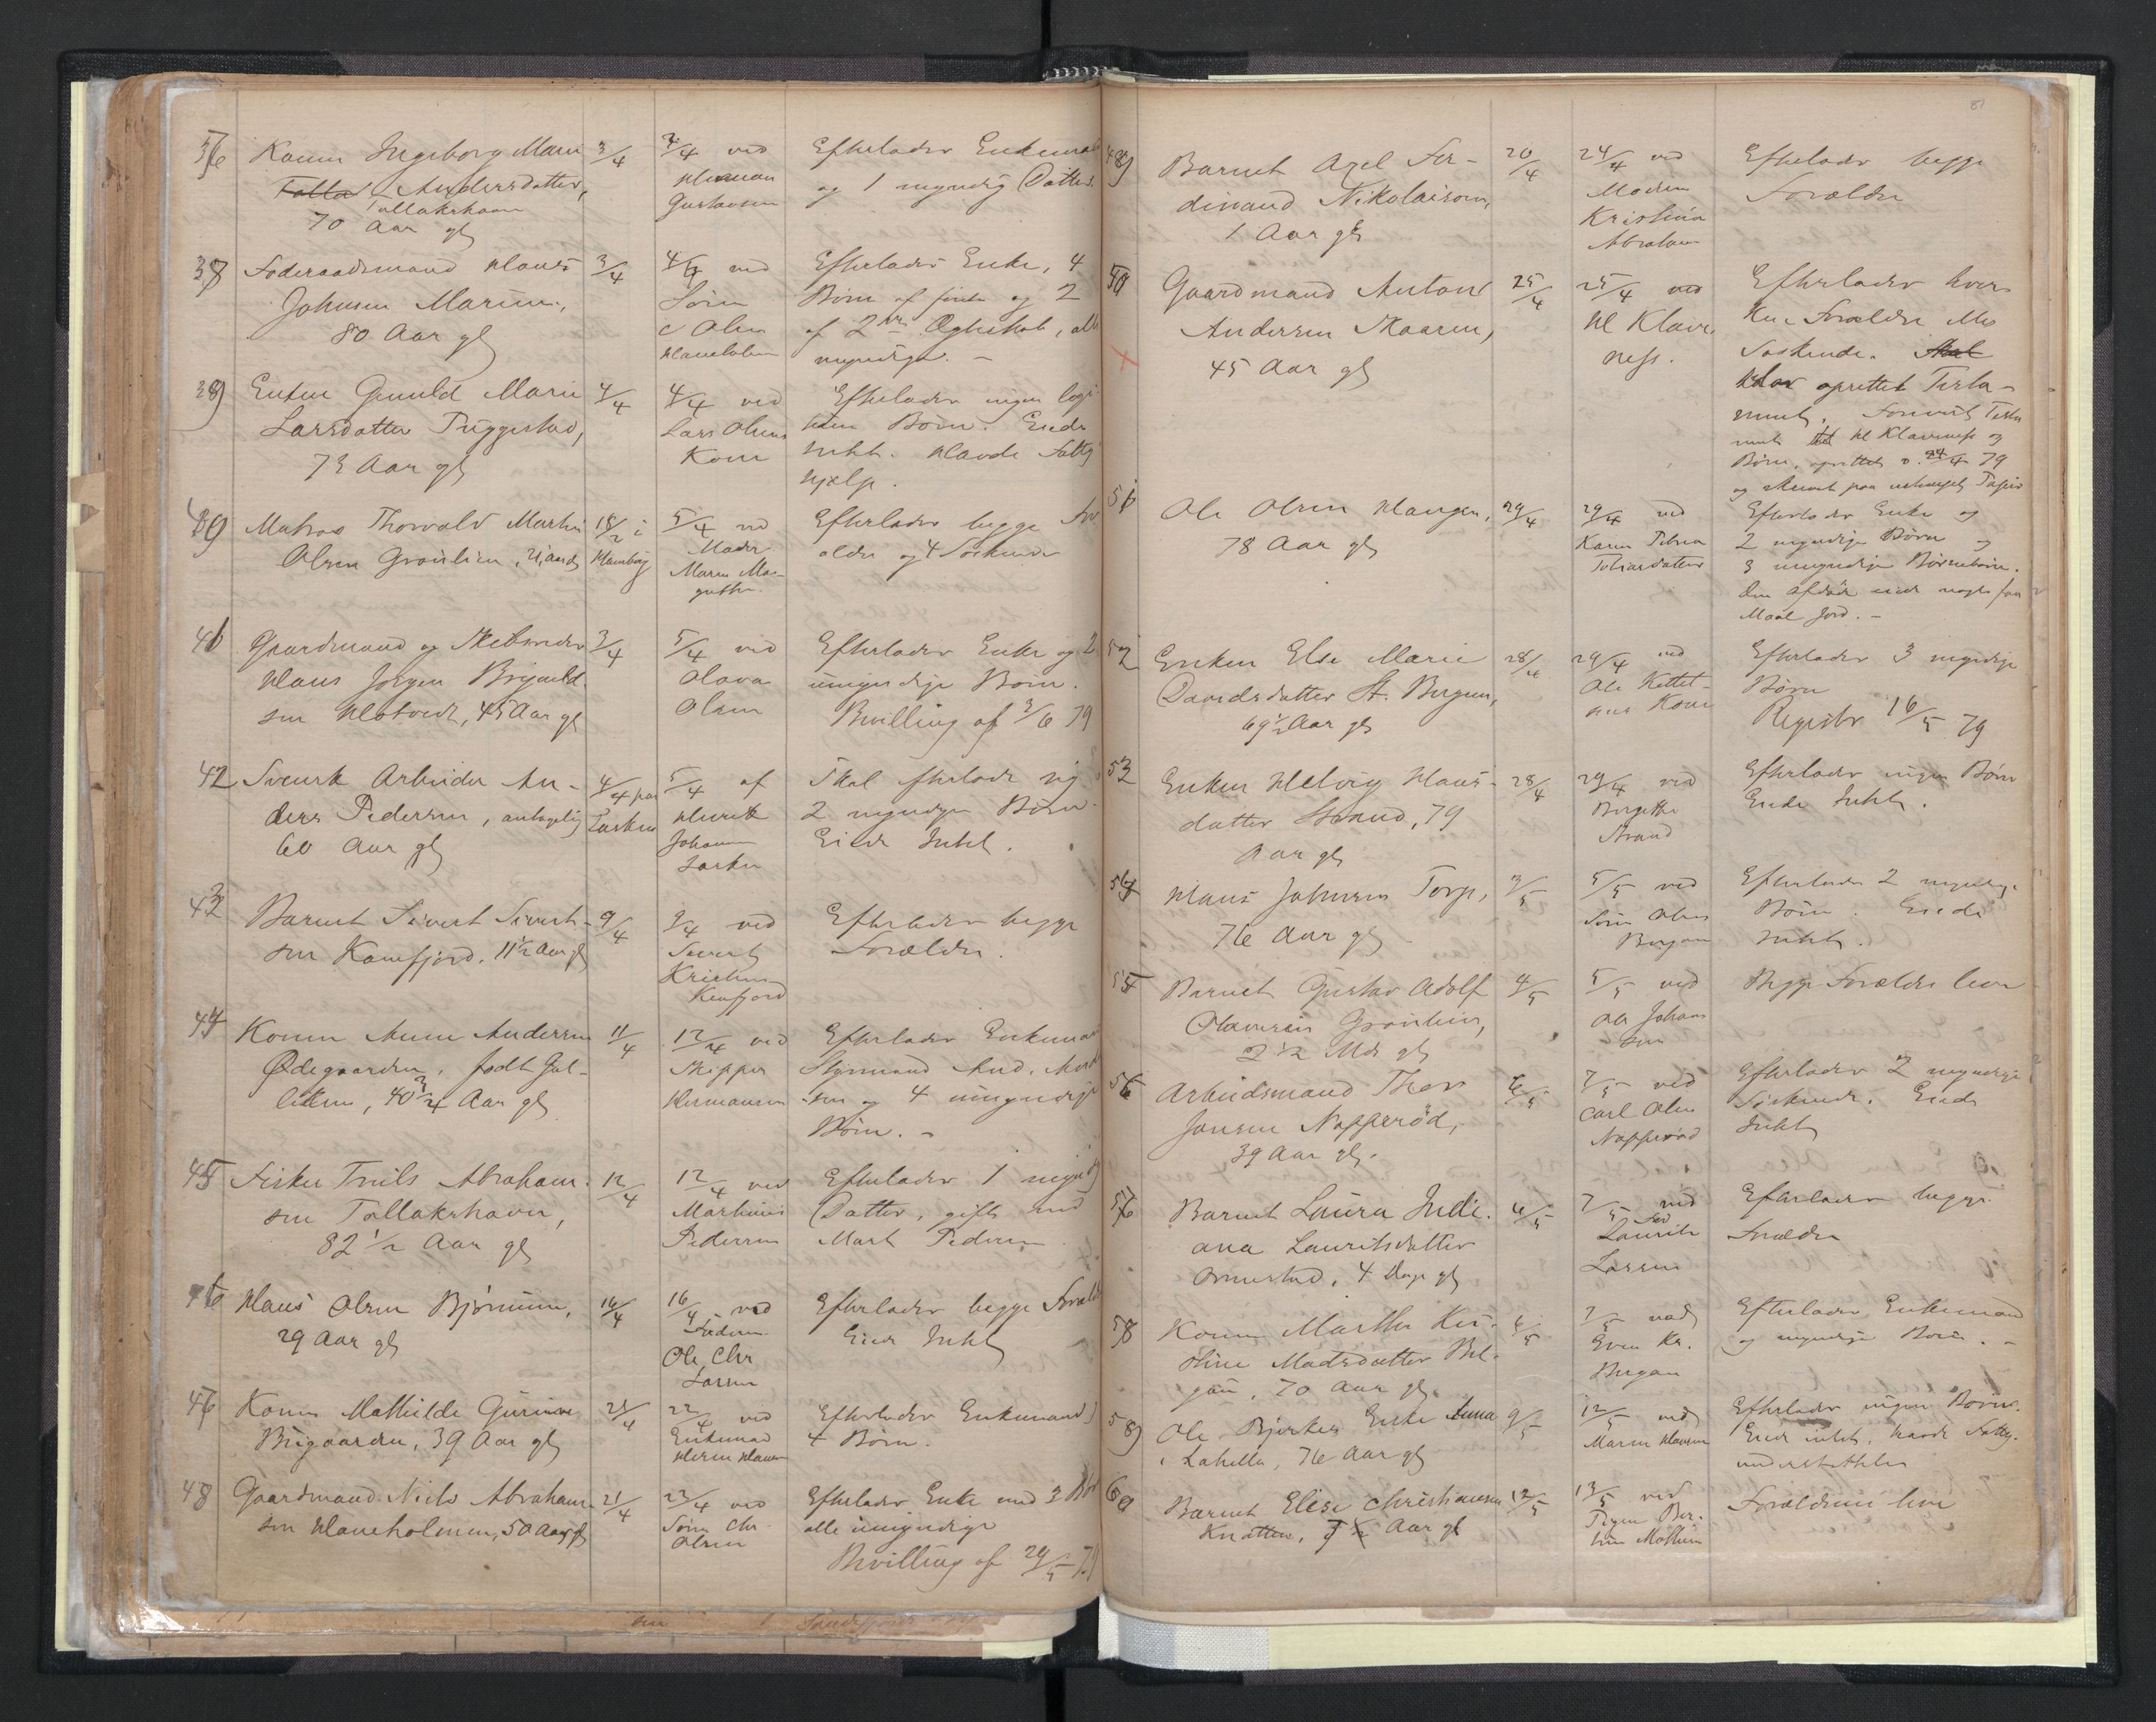 37
Konen Ingeborg Marie
Andersdatter,
Tallakshavn
70 Aar gl
3/4
4/4 ved
Herman
Gustavsen
Efterlader Enkemand
og 1 myndig Datter.
38
Föderaadsmand Hans
Johnsen Marum,
80 Aar gl
3/4
4/4 ved
Sören
C Olsen
Haneholmen
Efterlader Enke, 4
Börn af förste og 2
af 2det Ægteskab, alle
myndige. –
39
Enken Gunild Marie
Larsdatter Tuggestad,
73 Aar gl
4/4
4/4 ved
Lars Olsens
Kone
Efterlader ingen legi-
time Börn. Eiede
Intet. Havde Fattig
hjælp.
40
Matros Thorvald Martin
Olsen Grönlien, 21 Aar gl
18/2 i
Hamburg
5/4 ved
Moder
Maren Mar-
grethe
Efterlader begge For
ældre og 4 Söskende
41
Gaardmand og Skibsreder
Hans Jörgen Brynild
sen Hotvedt, 45 Aar gl
3/4
5/4 ved
Olava
Olsen
Efterlader Enke og 2
umyndige Börn.
Bevilling af 3/6 79
42
Svensk Arbeider An-
ders Pedersen, antagelig
60 Aar gl
4/4 paa
5/4 af
Henrik
Johansen
Skal efterlade sig
2 myndige Börn
Eiede Intet.
43
Barnet Sivert Sivert-
sen Kamfjord, 11½ Aar gl
9/4
9/4 ved
Sivert
Kristensen
Kamfjord
Efterlader begge
Forældre.
44
Konen Anne Andersen
Ødegaarden, födt Gul-
liksen, 40 3/4 Aar gl
11/4
12/4 ved
Skipper
Hermansen
Efterlader Enkemand
Styrmand And. Ander
sen og 4 umyndige
Börn. –
45
Fisker Truls Abraham-
sen Tallakshavn,
82 ½ Aar gl
12/4
12/4 ved
Marthinius
Pedersen
Efterlader 1 myndig
Datter, gift med
Mart Pedersen
46
Hans Olsen Bjönnum,
29 Aar gl
16/4
16/4 ved
Faderen
Ole Chr
Larsen
Efterlader begge Foræld
Eiede Intet
47
Konen Mathilde Gurine
Brygaarden, 39 Aar gl
21/4
22/4 ved
Enkemand
Herm Hansen
Efterlader Enkemand
4 Börn.
48
Gaardmand Niels Abraham-
sen Haneholmen, 50 Aar gl
21/4
23/4 ved
Sören Chr.
Olsen
Efterlader Enke med 3 Börn
alle umyndige
Bevilling af 29/5 79
81
49
Barnet Axel Fer-
dinand Nikolaisen,
1 Aar gl
20/4
24/4 ved
Moderen
Kristina
Abraham
Efterlader begge
Forældre
50
Gaardmand Anton
Andersen Skaaren,
45 Aar gl
25/4
25/4 ved
H Klave-
ness.
Efterlader hver-
ken Forældre eller
Söskende. Skal
Har oprettet Testa-
ment.
H Klaveness og
Börn, oprettet d. 24/4 79
og skrevet paa ustemplet Papir
51
Ole Olsen Haugen,
78 Aar gl
29/4
29/4 ved
Karen Petrea
Tobiasdatter
Efterlader Enke og
2 myndige Börn og
3 umyndige Börnebörn.
Den afdöde eiede nogle faa
Maal Jord. –
52
Enken Else Marie
Davidsdatter St. Bergan,
69½ Aar gl
28/4
29/4 ved
Ole Kittel-
sens Kone
Efterlader 3 myndige
Börn
Registr 16/5 79
53
Enken Helvig Hans-
datter Strand, 79
Aar gl
28/4
29/4 ved
Bergitte
Strand
Efterlader ingen Börn
Eiede Intet.
54
Hans Johnsen Torp,
76 Aar gl
3/5
5/5 ved
Sören Olsen
Bergan
Efterlader 2 myndige
Börn. Eiede
Intet.
55
Barnet Gustav Adolf
Olavesen Grönlien,
2 ½ Mdr gl
4/5
5/5 ved
Ole Johan
sen
Begge Forældre lever
56
Arbeidsmand Thor
Jonsen Napperöd,
39 Aar gl.
6/5
7/5 ved
Carl Olsen
Napperöd
Efterlader 2 myndige
Söskende. Eiede
Intet
57
Barnet Laura Indi-
ana Lauritsdatter
Ormestad, 4 Dage gl
4/5
7/5 ved
Laurits
Larsen
Efterlader begge
Forældre
58
Konen Marthe Kir-
stine Madsdatter Ber-
gan, 70 Aar gl.
6/5
7/5 ved
Even Kr.
Bergan
Efterlader Enkemand
og myndige Börn. –
59
Ole Bjerkes Enke Anna
i Lahella, 76 Aar gl
9/5
12/5 ved
Maren Hansen
Efterlader ingen Börn.
Eiede intet, havde Fattig-
understöttelse
60
Barnet Elise Christiansen
Knatten, ½ Aar gl
12/5
13/5 ved
Forældrene lever